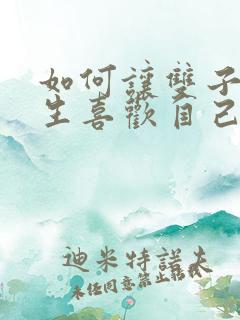 如何讓雙子
生喜歡自己
迪米特諾夫
未任同意禁止転載